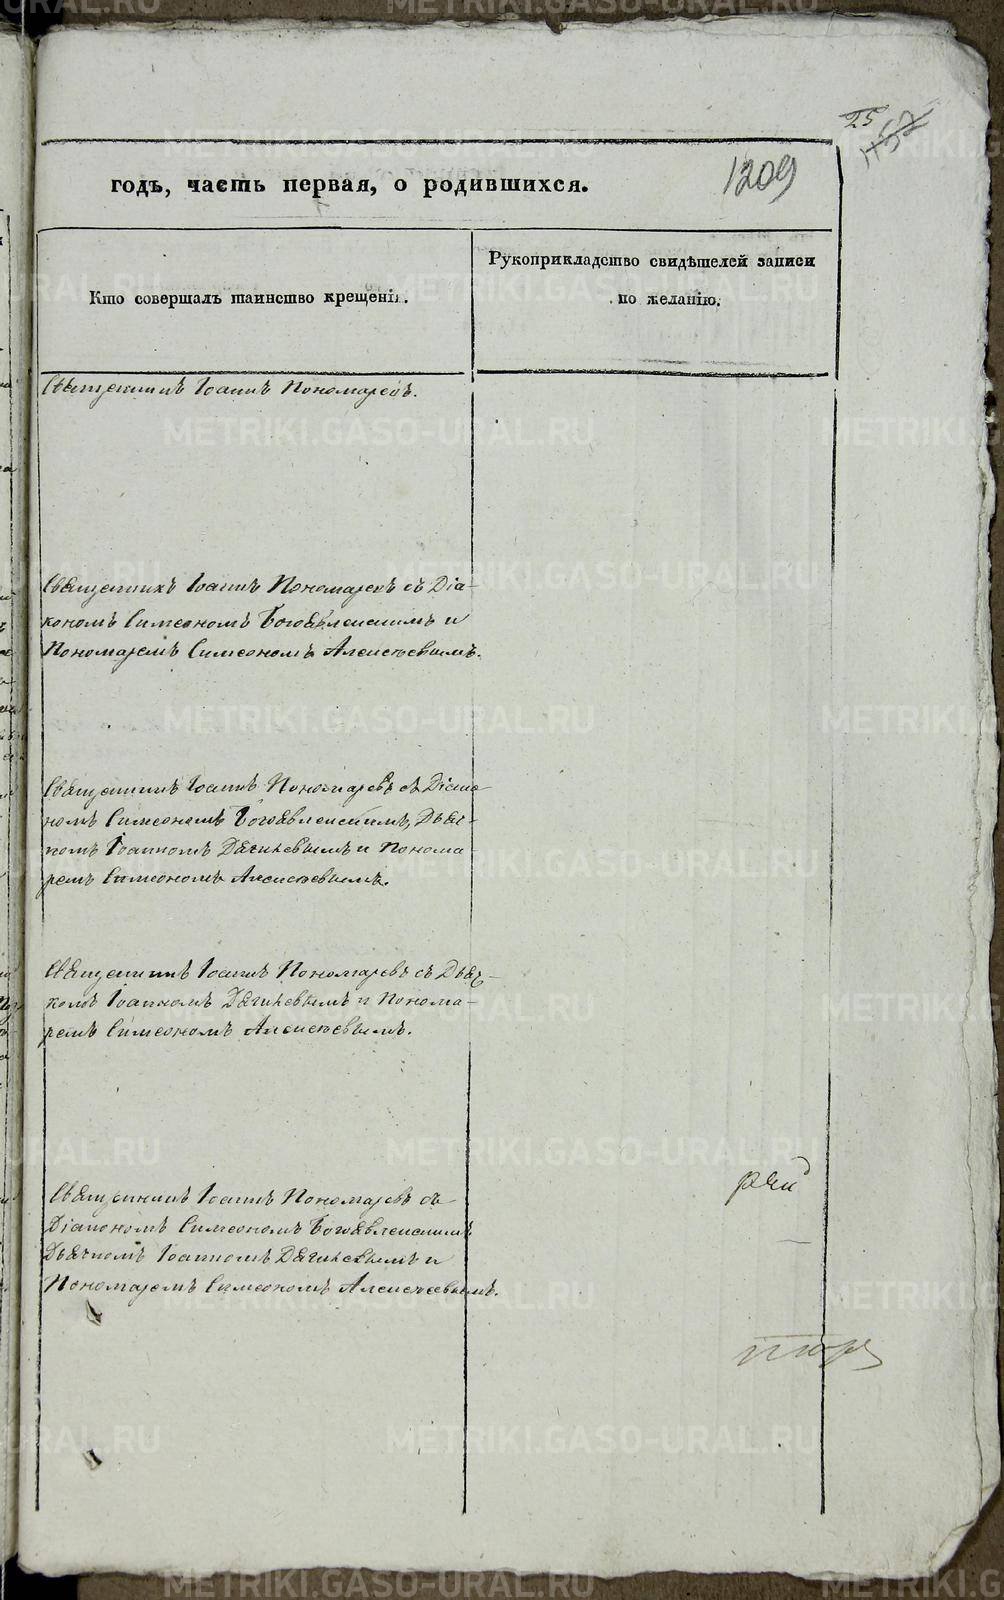 25
1157
годъ, часть первая, о родившихся.
1209
Кто совершалъ таинство крещенія.
Рукоприкладство свидѣтелей записи
по желанію.
Священникъ Іоаннъ Пономаревъ.
Священникъ Іоаннъ Пономаревъ съ Діа-
кономъ Симеономъ Богоявленскимъ и
Пономаремъ Симеономъ Алексѣевымъ.
Священникъ Іоаннъ Пономаревъ съ Діако-
номъ Симеономъ Богоявленскимъ, Дьяч-
комъ Іоанномъ Дягилевымъ и Понома-
ремъ Симеономъ Алексѣевымъ.
Священникъ Іоаннъ Пономаревъ съ Дьяч-
комъ Іоанномъ Дягилевымъ и Понома-
ремъ Симеономъ Алексѣевымъ.
Священникъ Іоаннъ Пономаревъ съ
Діакономъ Симеономъ Богоявленскимъ
Дьячкомъ Іоанномъ Дягилевымъ и
Пономаремъ Симеономъ Алексѣевымъ.
METRIKI.GASO-URAL.RU